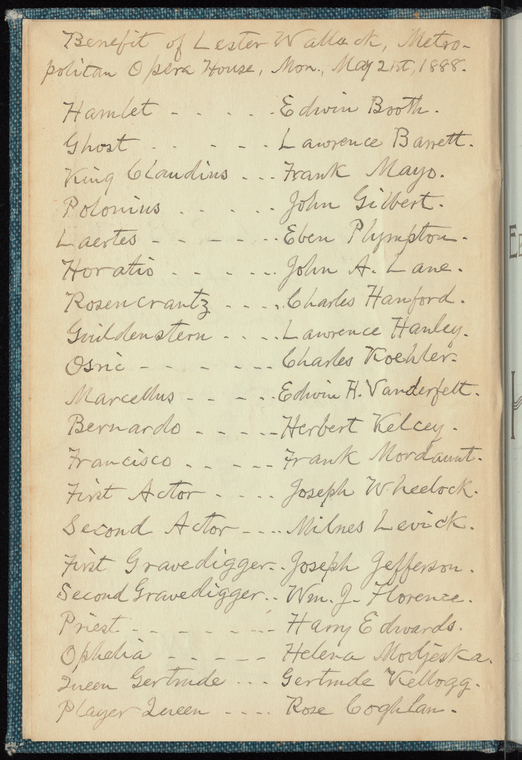 Benefit of Lester Wallack, Metro-
politan Opera House, Mon., May 21st, 1888.
Hamlet - - - - - Edwin Booth.
Ghost - - - - - Lawrence Barrett.
King Claudius - - - Frank Mayo.
Polonius - - - - - John Gilbert.
Laertes - - - - - Eben Plympton.
Horatio - - - - - John A. Lane.
Rosencrantz - - - - Charles Hanford.
Guildenstern - - - - Lawrence Hanley.
Osric - - - - - - Charles Koehler.
Marcellus - - - - - Edwin H. Vanderfelt.
Bernardo - - - - - Herbert Kelcey.
Francisco - - - - - Frank Mordaunt.
First Actor - - - - Joseph Wheelock.
Second Actor - - - - Milnes Levick.
First Gravedigger - - Joseph Jefferson.
Second Gravedigger - - Wm. J. Florence.
Priest - - - - - - Harry Edwards.
Ophelia - - - - - Helena Modjeska.
Queen Gertrude - - - Gertrude Kellogg.
Player Queen - - - - Rose Coghlan.